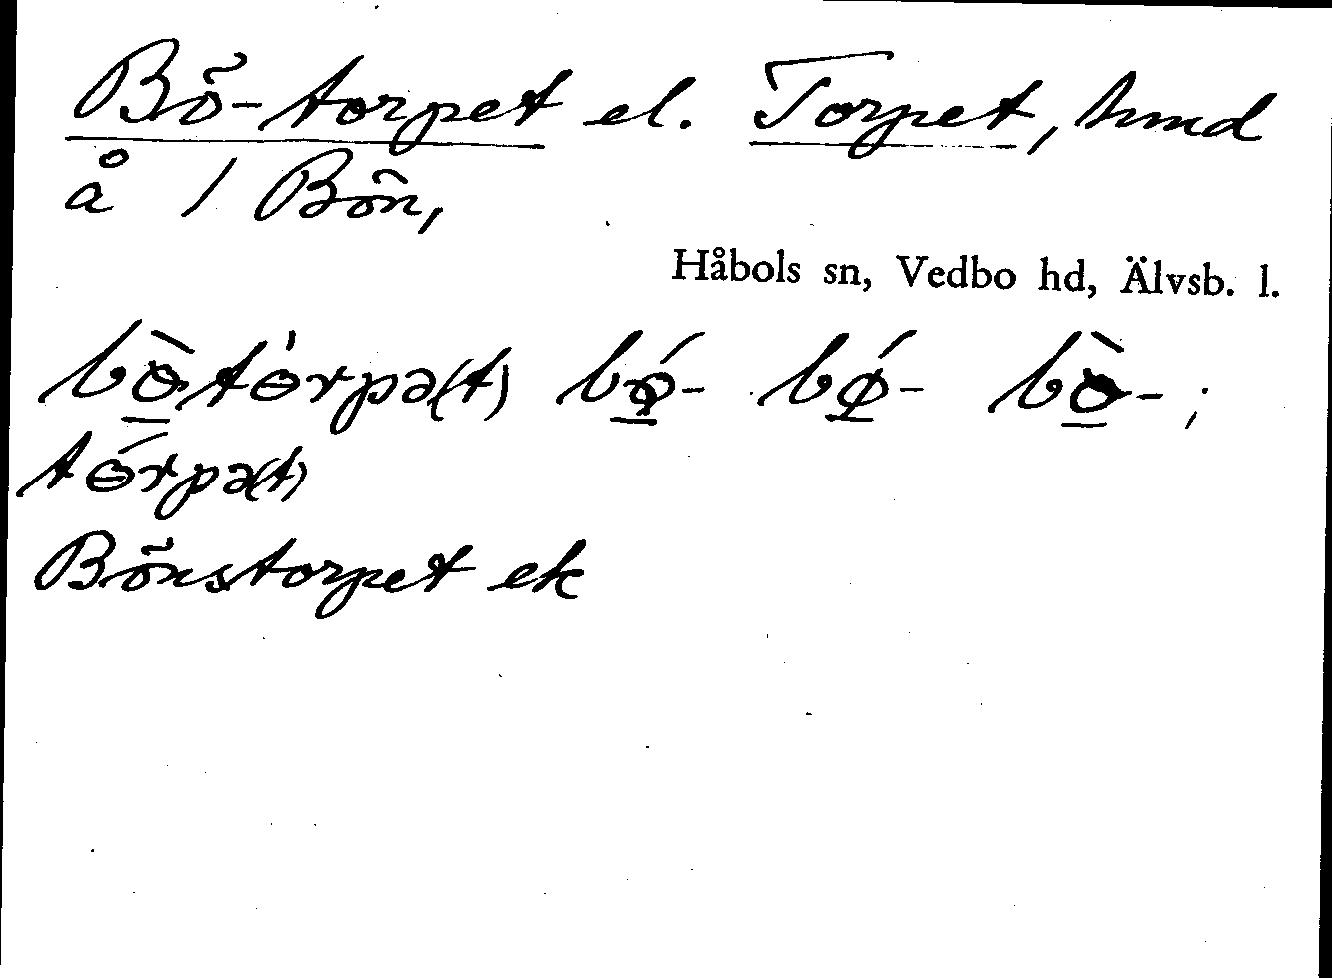 Bö-torpet el. Torpet, hmd
å 1 Bön,
Håbols sn, Vedbo hd, Älvsb. l.
bö̀tɵ́rpə(t) bǿ- bǿ- bö̀- ;
tɵ́rpə(t)
Bönstorpet ek